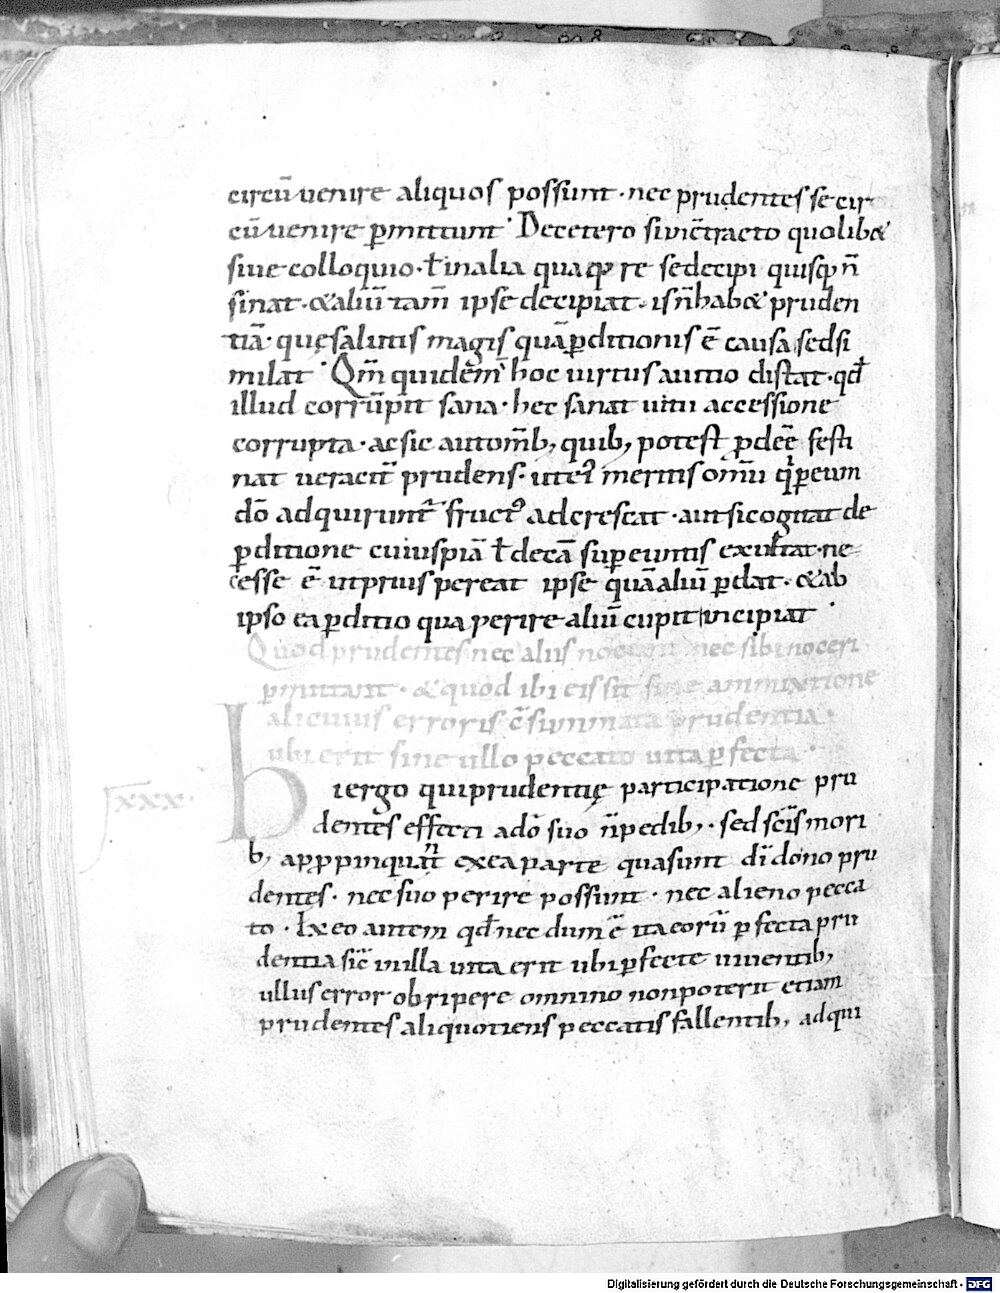 circū uenire aliquos possunt · nec prudentes se cir
cū uenire pmittunt · Decetero siinc̄tracto quolib&
siue colloquio · ł in alia qua qp re se decipi quisqp n̄
sinat · & aliū tam̄ ipse decipiat · is n̄ hab& pruden
tiā · quę salutis magis quā pditionis ē causa sed si
milat · Qm̄ quidem hoc uirtus a uitio distat · qđ
illud corrūpit sana · hec sanat uitii accessione
corrupta · ac sic aut om̄ib; quib; potest pdeē festi
nat ueracit̄ prudens · ut ei meritis omiū q̇ p eum
dō adquirunt̄ fruct; adcrescat · aut si cogitat de
pditione cuiuspiā ł decā supeuntis exultat · ne
cesse ē ut prius pereat ipse quā aliū pdat · & ab
ipso ea pditio qua perire aliū cupit incipiat ·
Quod prudentes nec aliis nec sibi noceri
pmittant · & quod ibi eis sit sine ammixtione
alicuius erroris c̄summata prudentia ·
ubi erit sine ullo peccato uita pfecta ·
xxx·
hi ergo qui prudentię participatione pru
dentes effecti ad dō suo n̄ pedib; · sed scīs mori
b; appinquant̄ ex ea parte qua sunt dī dono pru
dentes · nec suo perire possunt · nec alieno pecca
to · Ex eo autem qđ nec dum ē ita eorū pfecta pru
dentia sic̄ in illa uita erit ubi pfecte uiuentib;
ullus error obripere omnino non poterit etiam
prudentes aliquotiens peccatis fallentib; adqui
Digitalisierung gefördert durch die Deutsche Forschungsgemeinschaft · DFG